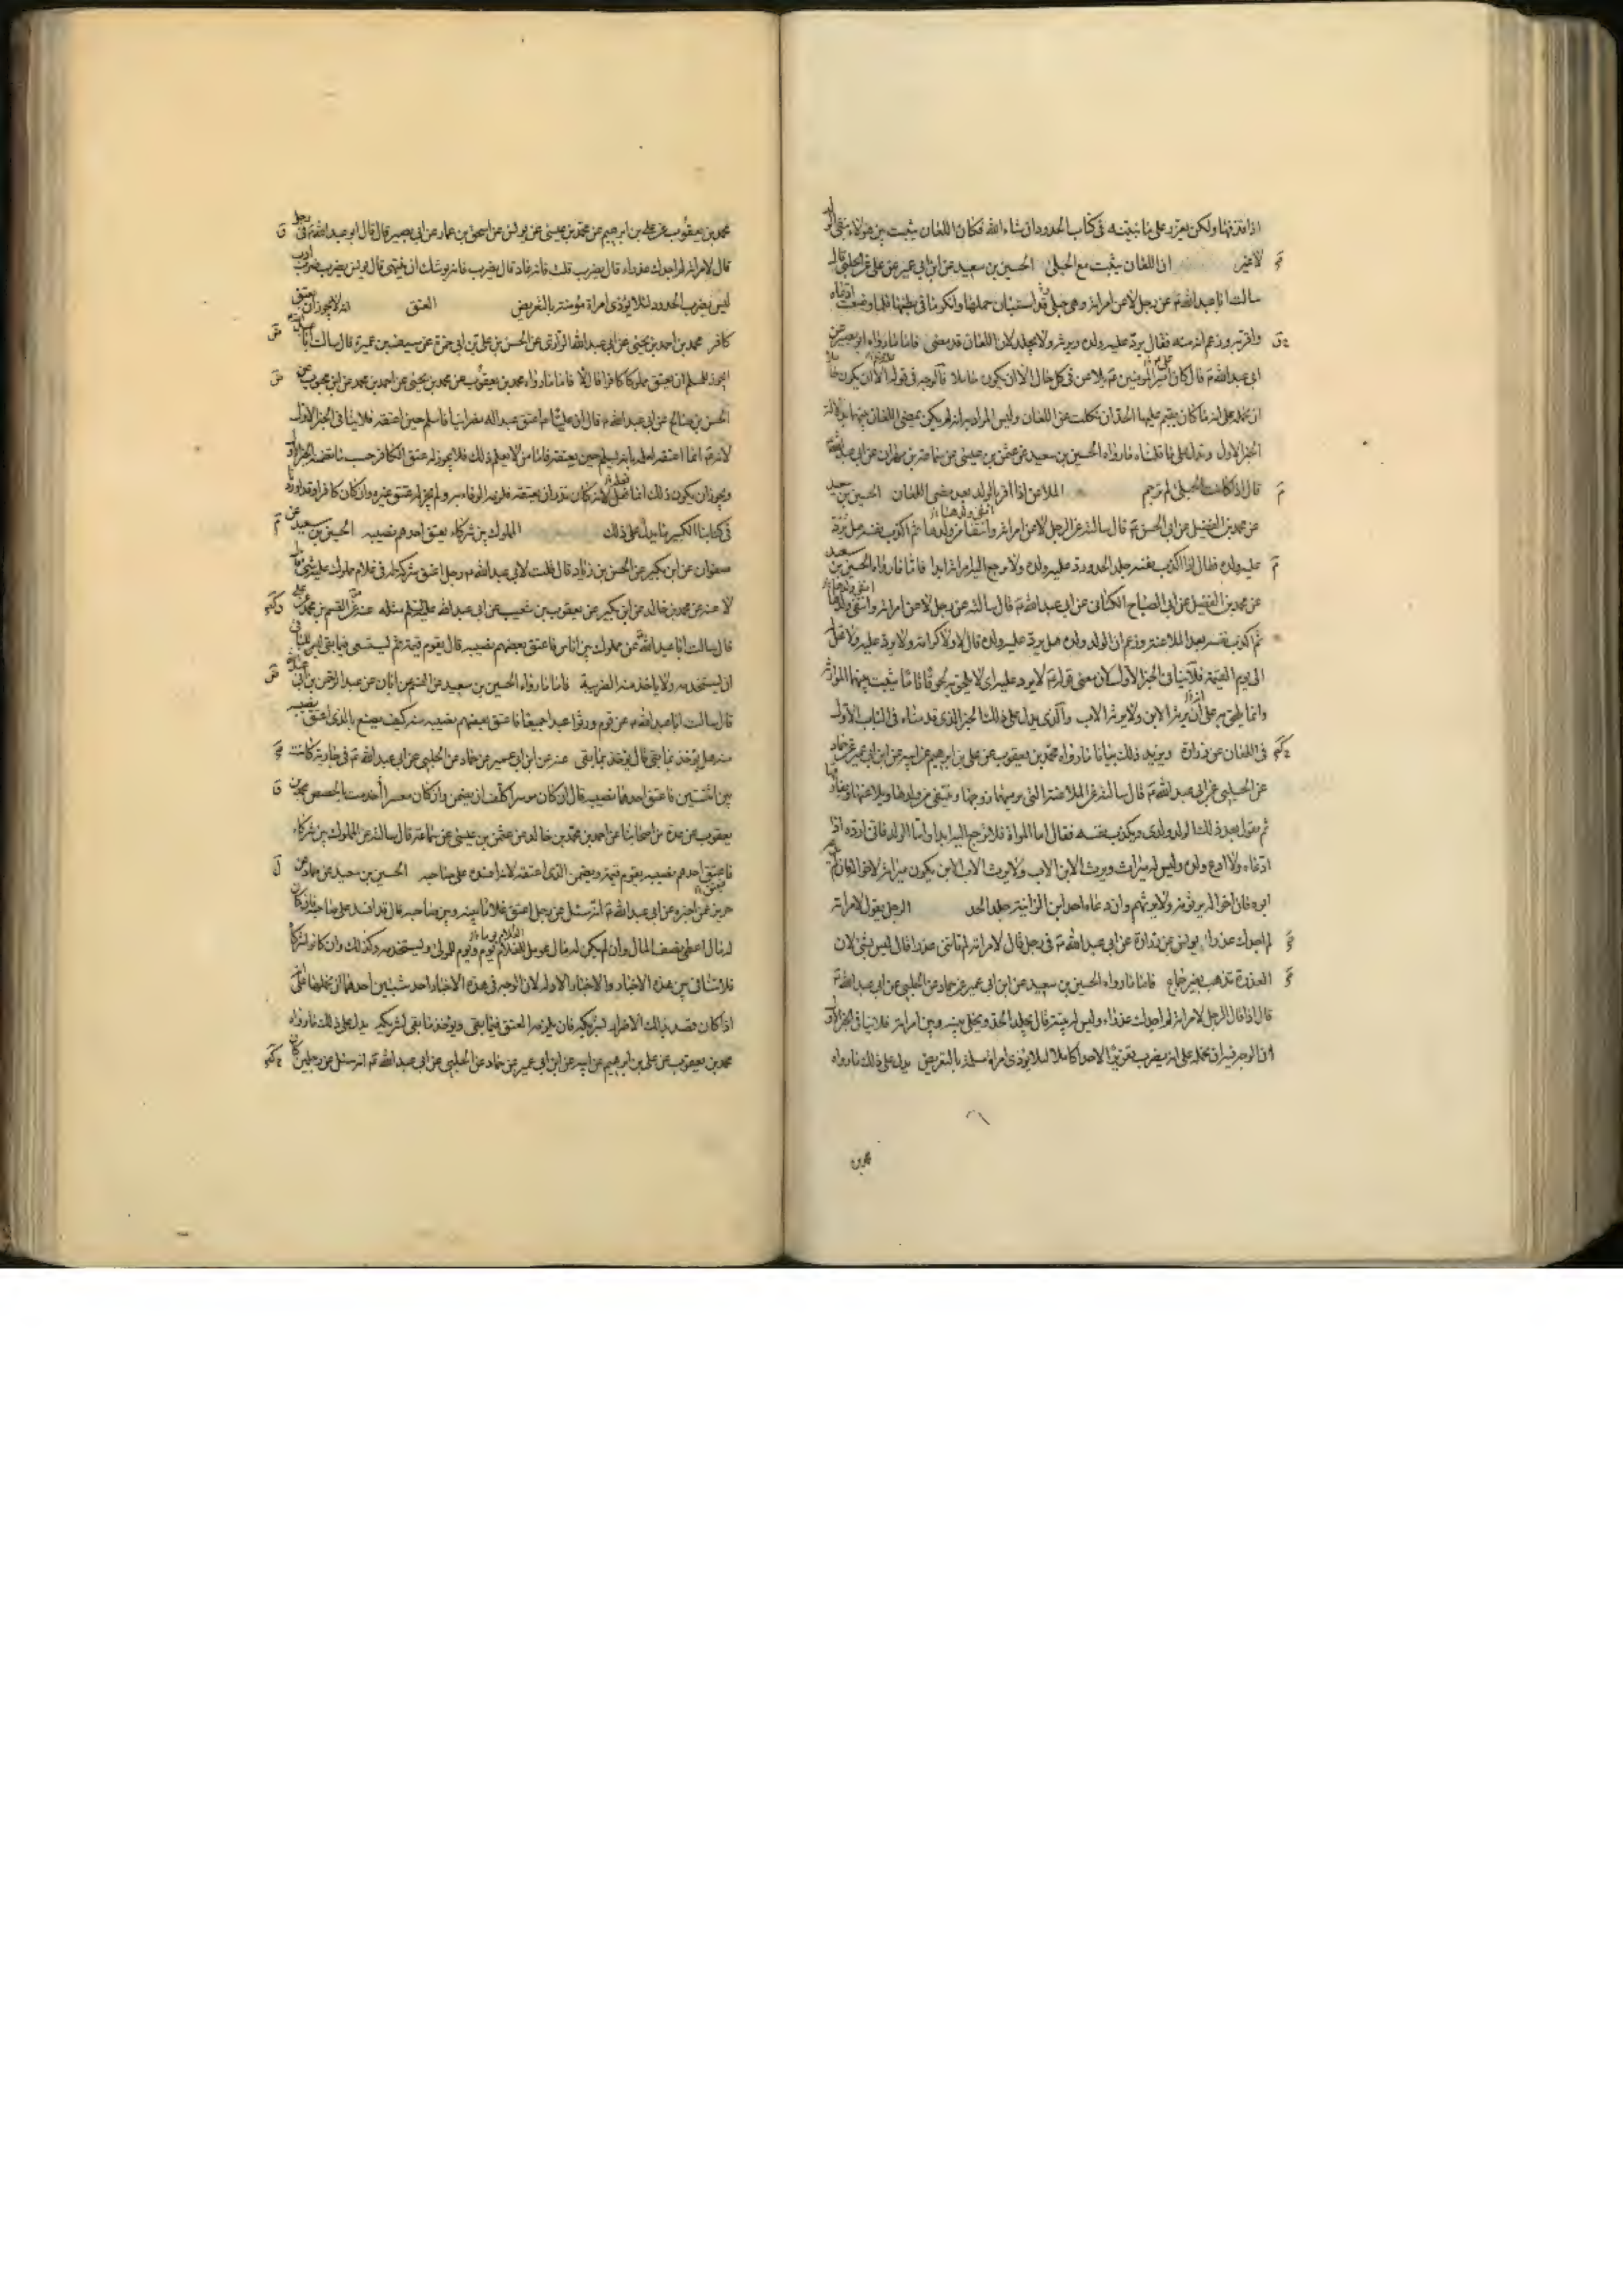 اذا قذفها ولكن يعزر على ما نبيّنه فى كتاب الحدود ان شاء الله فكان اللعان يثبت بين هؤلاء بنفى الولد
لا غير ان اللعان يثبت مع الحبلى الحسين بن سعيد عن ابن ابى عمير عن على عن الحلبى قال
سالت ابا عبد الله ع عن رجل لاعن امراته وهى حبلى قد استبان حملها وانكر ما فى بطنها فلما وضعت ادعاه
واقر به وزعم انه منه فقال يرد عليه ولده ويرثه ولا يجلد لان اللعان قد مضى فاما ما رواه ابو بصير عن
ابى عبد الله ع قال كان امير المومنين ع يلاعن فى كل حال الا ان يكون حاملا فالوجه فى قوله الا ان يكون حاملا
ان نحمله على انه ما كان يقيم عليها الحد ان نكلت عن اللعان وليس المراد به انه لم يكن يمضى اللعان بينهما بدلالة
الخبر الاول ويدل على ما قلناه ما رواه الحسين بن سعيد عن عثمن بن عيسى عن سماعة بن مهران عن ابى عبد الله ع
قال اذا كانت الحبلى لم ترجم الملاعن اذا اقر بالولد بعد مضى اللعان الحسين بن سعيد
عن محمد بن الفضيل عن ابى الحسن ع قال سالته عن الرجل لاعن امراته وانتفا من ولدها ثم اكذب نفسه هل يرد
عليه ولده فقال اذا اكذب نفسه جلد الحد ورد عليه ولده ولا ترجع اليه امراته ابدا فاما ما رواه الحسين بن سعيد
عن محمد بن الفضيل عن ابى الصباح الكنانى عن ابى عبد الله ع قال سالته عن رجل لاعن امراته وانتفى من ولدها
ثم اكذب نفسه بعد الملاعنة وزعم ان الولد ولده هل يرد عليه ولده قال لا ولا كرامة ولا يرد عليه ولا تحل له
الى يوم القيمة فلا ينافى الخبر الاول لان معنى قوله ع لا يرد عليه اى لا يلحق به لحوقا تاما يثبت بينهما الموارثة
وانما يلحق به على ان يرثه الابن ولا يرثه الاب والذى يدل على ذلك الخبر الذى قدمناه فى الباب الاول
فى اللعان عن زرارة ويزيد ذلك بيانا ما رواه محمد بن يعقوب عن على بن ابرهيم عن ابيه عن ابن ابى عمير عن حماد
عن الحلبى عن ابى عبد الله ع قال سالته عن الملاعنة التى يرميها زوجها وينتفى من ولدها ويلاعنها ويفارقها
ثم يقول بعد ذلك الولد ولدى ويكذب نفسه فقال اما المراة فلا ترجع اليه ابدا واما الولد فانى ارده اذا
ادعاه ولا ادع ولده وليس له ميراث ويرث الابن الاب ولا يرث الاب الابن يكون ميراثه لاخواله فان لم يدعه
ابوه فان اخواله يرثونه ولا يرثهم وان دعاه احد ابن الزانية جلد الحد الرجل يقول لامراته
لم اجدك عذراء يونس عن زرارة عن ابى عبد الله ع فى رجل قال لامراته لم تاتنى عذراء قال ليس بشى لان
العذرة تذهب بغير جماع فاما ما رواه الحسين بن سعيد عن ابن ابى عمير عن حماد عن الحلبى عن ابى عبد الله ع
قال اذا قال الرجل لامراته لم اجدك عذراء وليس له بينة قال يجلد الحد ويخلى بينه وبين امراته فلا ينافى الخبر الاول
لان الوجه فيه ان نحمله على انه يضرب تعزيرا لا حدا كاملا لئلا يوذى امراة مسلمة بالتعريض يدل على ذلك ما رواه
محمد بن
محمد بن يعقوب عن على بن ابرهيم عن محمد بن عيسى عن يونس عن اسحق بن عمار عن ابى بصير قال قال ابو عبد الله ع فى رجل
قال لامراته لم اجدك عذراء قال يضرب قلت فانه عاد قال يضرب فانه يوشك ان ينتهى قال يونس يضرب ضرب ادب
ليس يضرب الحدود لئلا يؤذى امراة مؤمنة بالتعريض العتق انه لا يجوز ان يعتق
كافر محمد بن احمد بن يحيى عن ابى عبد الله الرازى عن الحسن بن على بن ابى حمزة عن سيف بن عميرة قال سالت ابا عبد الله
ايجوز للمسلم ان يعتق مملوكا كافرا قال لا فاما ما رواه محمد بن يعقوب عن محمد بن يحيى عن احمد بن محمد عن ابن محبوب عن
الحسن بن صالح عن ابى عبد الله ع قال ان عليا ع اعتق عبدا له نصرانيا فاسلم حين اعتقه فلا ينافى الخبر الاول
لانه ع انما اعتقه لعلمه بانه يسلم حين يعتقه فاما من لا يعلم ذلك فلا يجوز له عتق الكافر حسب ما تضمنه الخبر الاول
ويجوز ان يكون ذلك انما فعل لانه كان نذر ان يعتقه فلزمه الوفاء به ولم يجز له عتق غيره وان كان كافرا وقد اوردنا
فى كتابنا الكبير ما يدل على ذلك المملوك بين شركاء يعتق احدهم نصيبه الحسين بن سعيد عن
صفوان عن ابن بكير عن الحسن بن زياد قال قلت لابى عبد الله ع رجل اعتق شركا له فى غلام مملوك عليه شى قال
لا عنه عن محمد بن خالد عن ابن بكير عن يعقوب بن شعيب عن ابى عبد الله عليه السلم مثله عنه عن القسم بن محمد عن على
قال سالت ابا عبد الله ع عن مملوك بين اناس فاعتق بعضهم نصيبه قال يقوم قيمة ثم يستسعى فيما بقى ليس للباقى
ان يستخدمه ولا ياخذ منه الضريبة فاما ما رواه الحسين بن سعيد عن القسم عن ابان عن عبد الرحمن بن ابى عبد الله
قال سالت ابا عبد الله ع عن قوم ورثوا عبدا جميعا فاعتق بعضهم نصيبه منه كيف يصنع بالذى اعتق نصيبه
منه هل يؤخذ بما بقى قال يؤخذ بما بقى عنه عن ابن ابى عمير عن حماد عن الحلبى عن ابى عبد الله ع فى جارية كانت
بين اثنين فاعتق احدهما نصيبه قال ان كان موسرا كلف ان يضمن وان كان معسرا اخدمت بالحصص محمد بن
يعقوب عن عدة من اصحابنا عن احمد بن محمد بن خالد عن عثمن بن عيسى عن سماعة قال سالته عن المملوك بين شركاء
فاعتق احدهم نصيبه يقوم قيمة ويضمن الذى اعتقه لانه افسده على صاحبه الحسين بن سعيد عن حماد عن
حريز عمن اخبره عن ابى عبد الله ع انه سئل عن رجل اعتق غلاما بينه وبين صاحبه قال قد افسد على صاحبه فان كان
له مال اعطى نصف المال وان لم يكن له مال عومل الغلام يوم للغلام ويوم للمولى ويستخدمه وكذلك وان كانوا شركاء
فلا تنافى بين هذه الاخبار والاخبار الاوله لان الوجه فى هذه الاخبار احد شيئين احدهما ان نحملها على انه
اذا كان قصد بذلك الاضرار لشريكه فانه يلزمه العتق فيما بقى ويؤخذ ما بقى لشريكه يدل على ذلك ما رواه
محمد بن يعقوب عن على بن ابرهيم عن ابيه عن ابن ابى عمير عن حماد عن الحلبى عن ابى عبد الله ع انه سئل عن رجلين كان